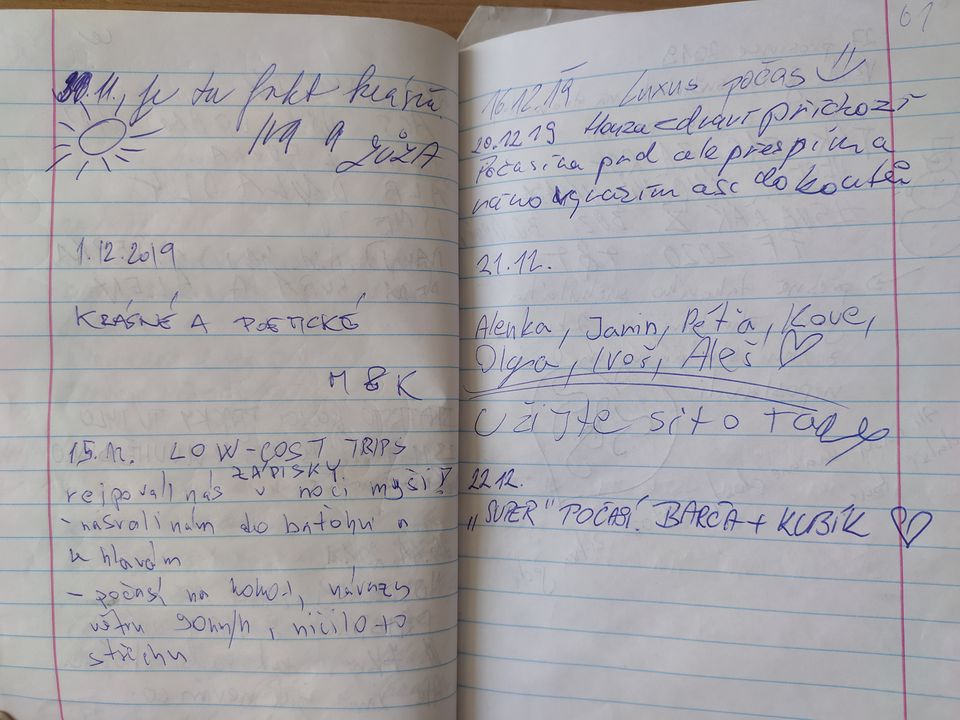 30.11., je tu fakt krásně
ZŮZA
1.12.2019
KRÁSNÉ A POETICKÉ
M & K
15.12. LOW-COST TRIPS
ZÁPISKY
rejpovali nás v noci myši!
- nasrali nám do batohu a
u hlavám
- počasí na kokot, nárazy
větru 90km/h, ničilo to
střechu
61
16.12.19 Luxus počas
20.12.19 Honza zdraví příchozí
Počasí na prd ale přespím a
ráno vyrazím asi do kouteň
21.12.
Alenka, Jamin, Péťa, Kove,
Olga, Ivoš, Aleš
Užijte si to tady
22.12.
„SUPER" POČASÍ. BARČA + KUBÍK